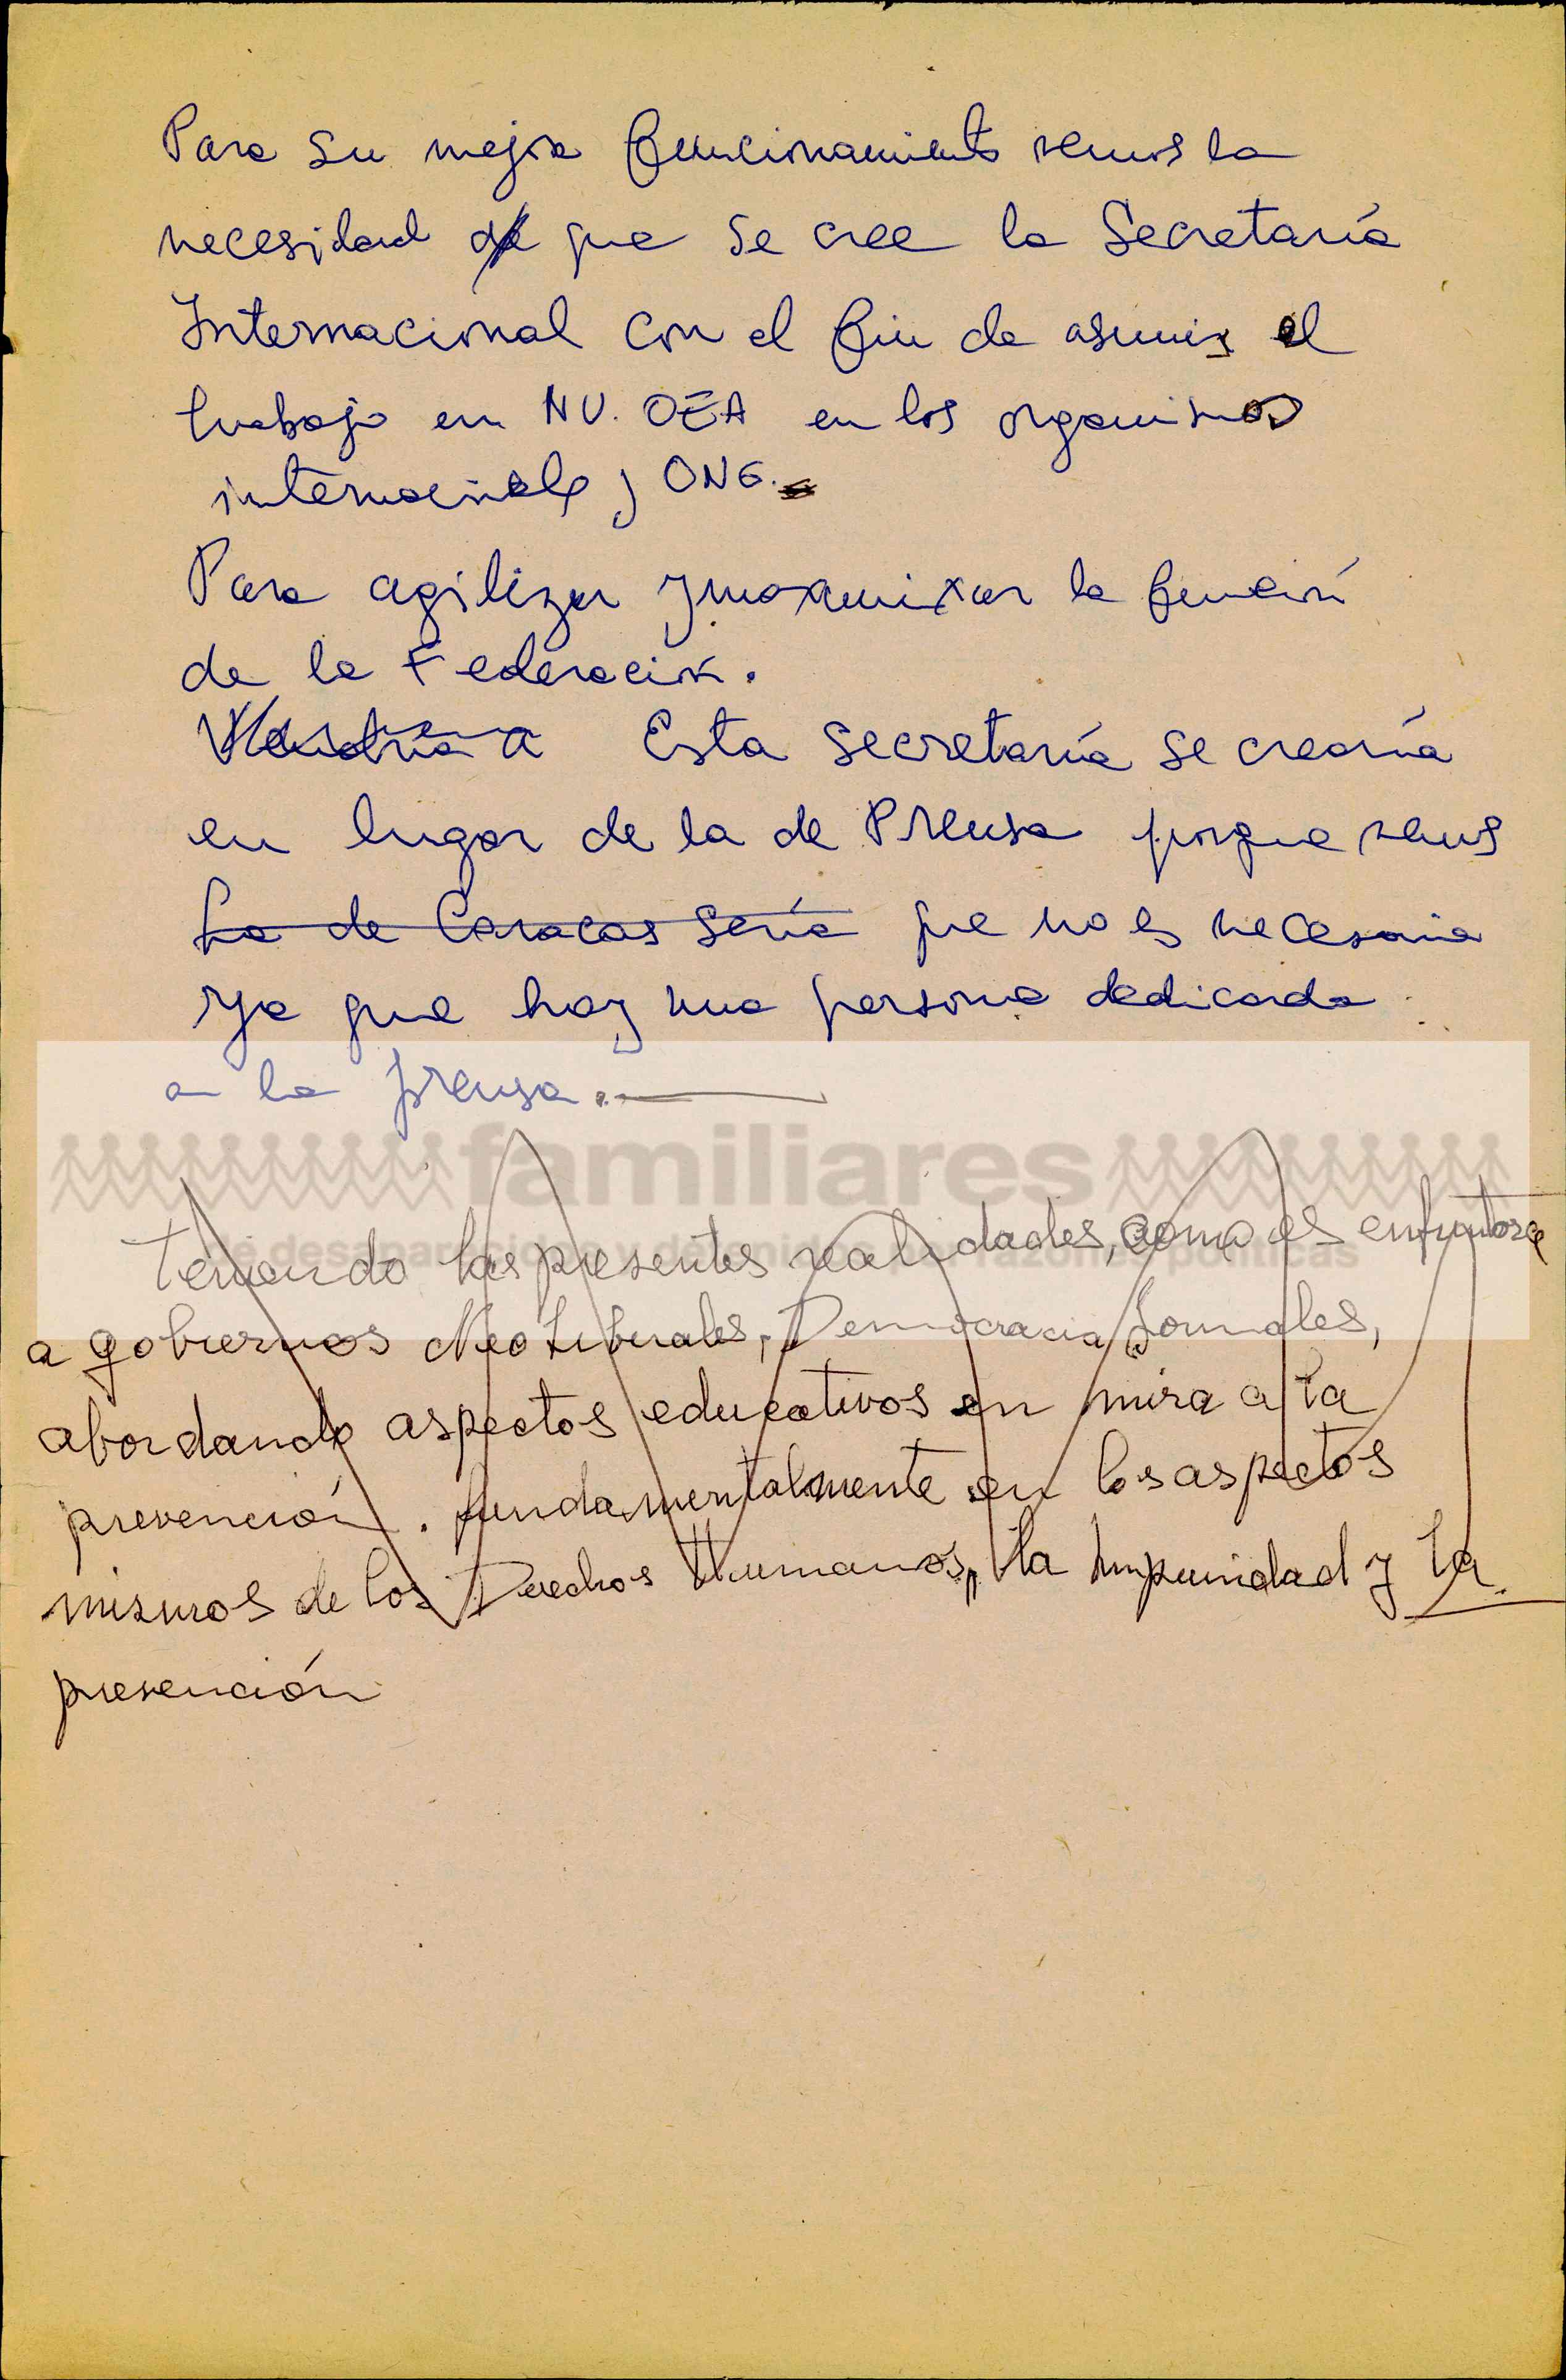 Para su mejor funcionamiento vemos la
necesidad de que se cree la Secretaría
Internacional con el fin de asumir el
trabajo en NU. OEA en los organismos
internacionales y ONG.
Para agilizar y maximizar la función
de la Federación.
Vendría a Esta secretaría se crearía
en lugar de la de Prensa porque vemos
La de Caracas sería que no es necesaria
ya que hay una persona dedicada
a la prensa.
familiares
de desaparecidos y detenidos por razones políticas
Teniendo las presentes realidades, como es enfrentarse
a gobiernos Neo Liberales, Democracia formales,
abordando aspectos educativos en mira a la
prevención. fundamentalmente en los aspectos
mismos de los Derechos Humanos, la Impunidad y la
prevención